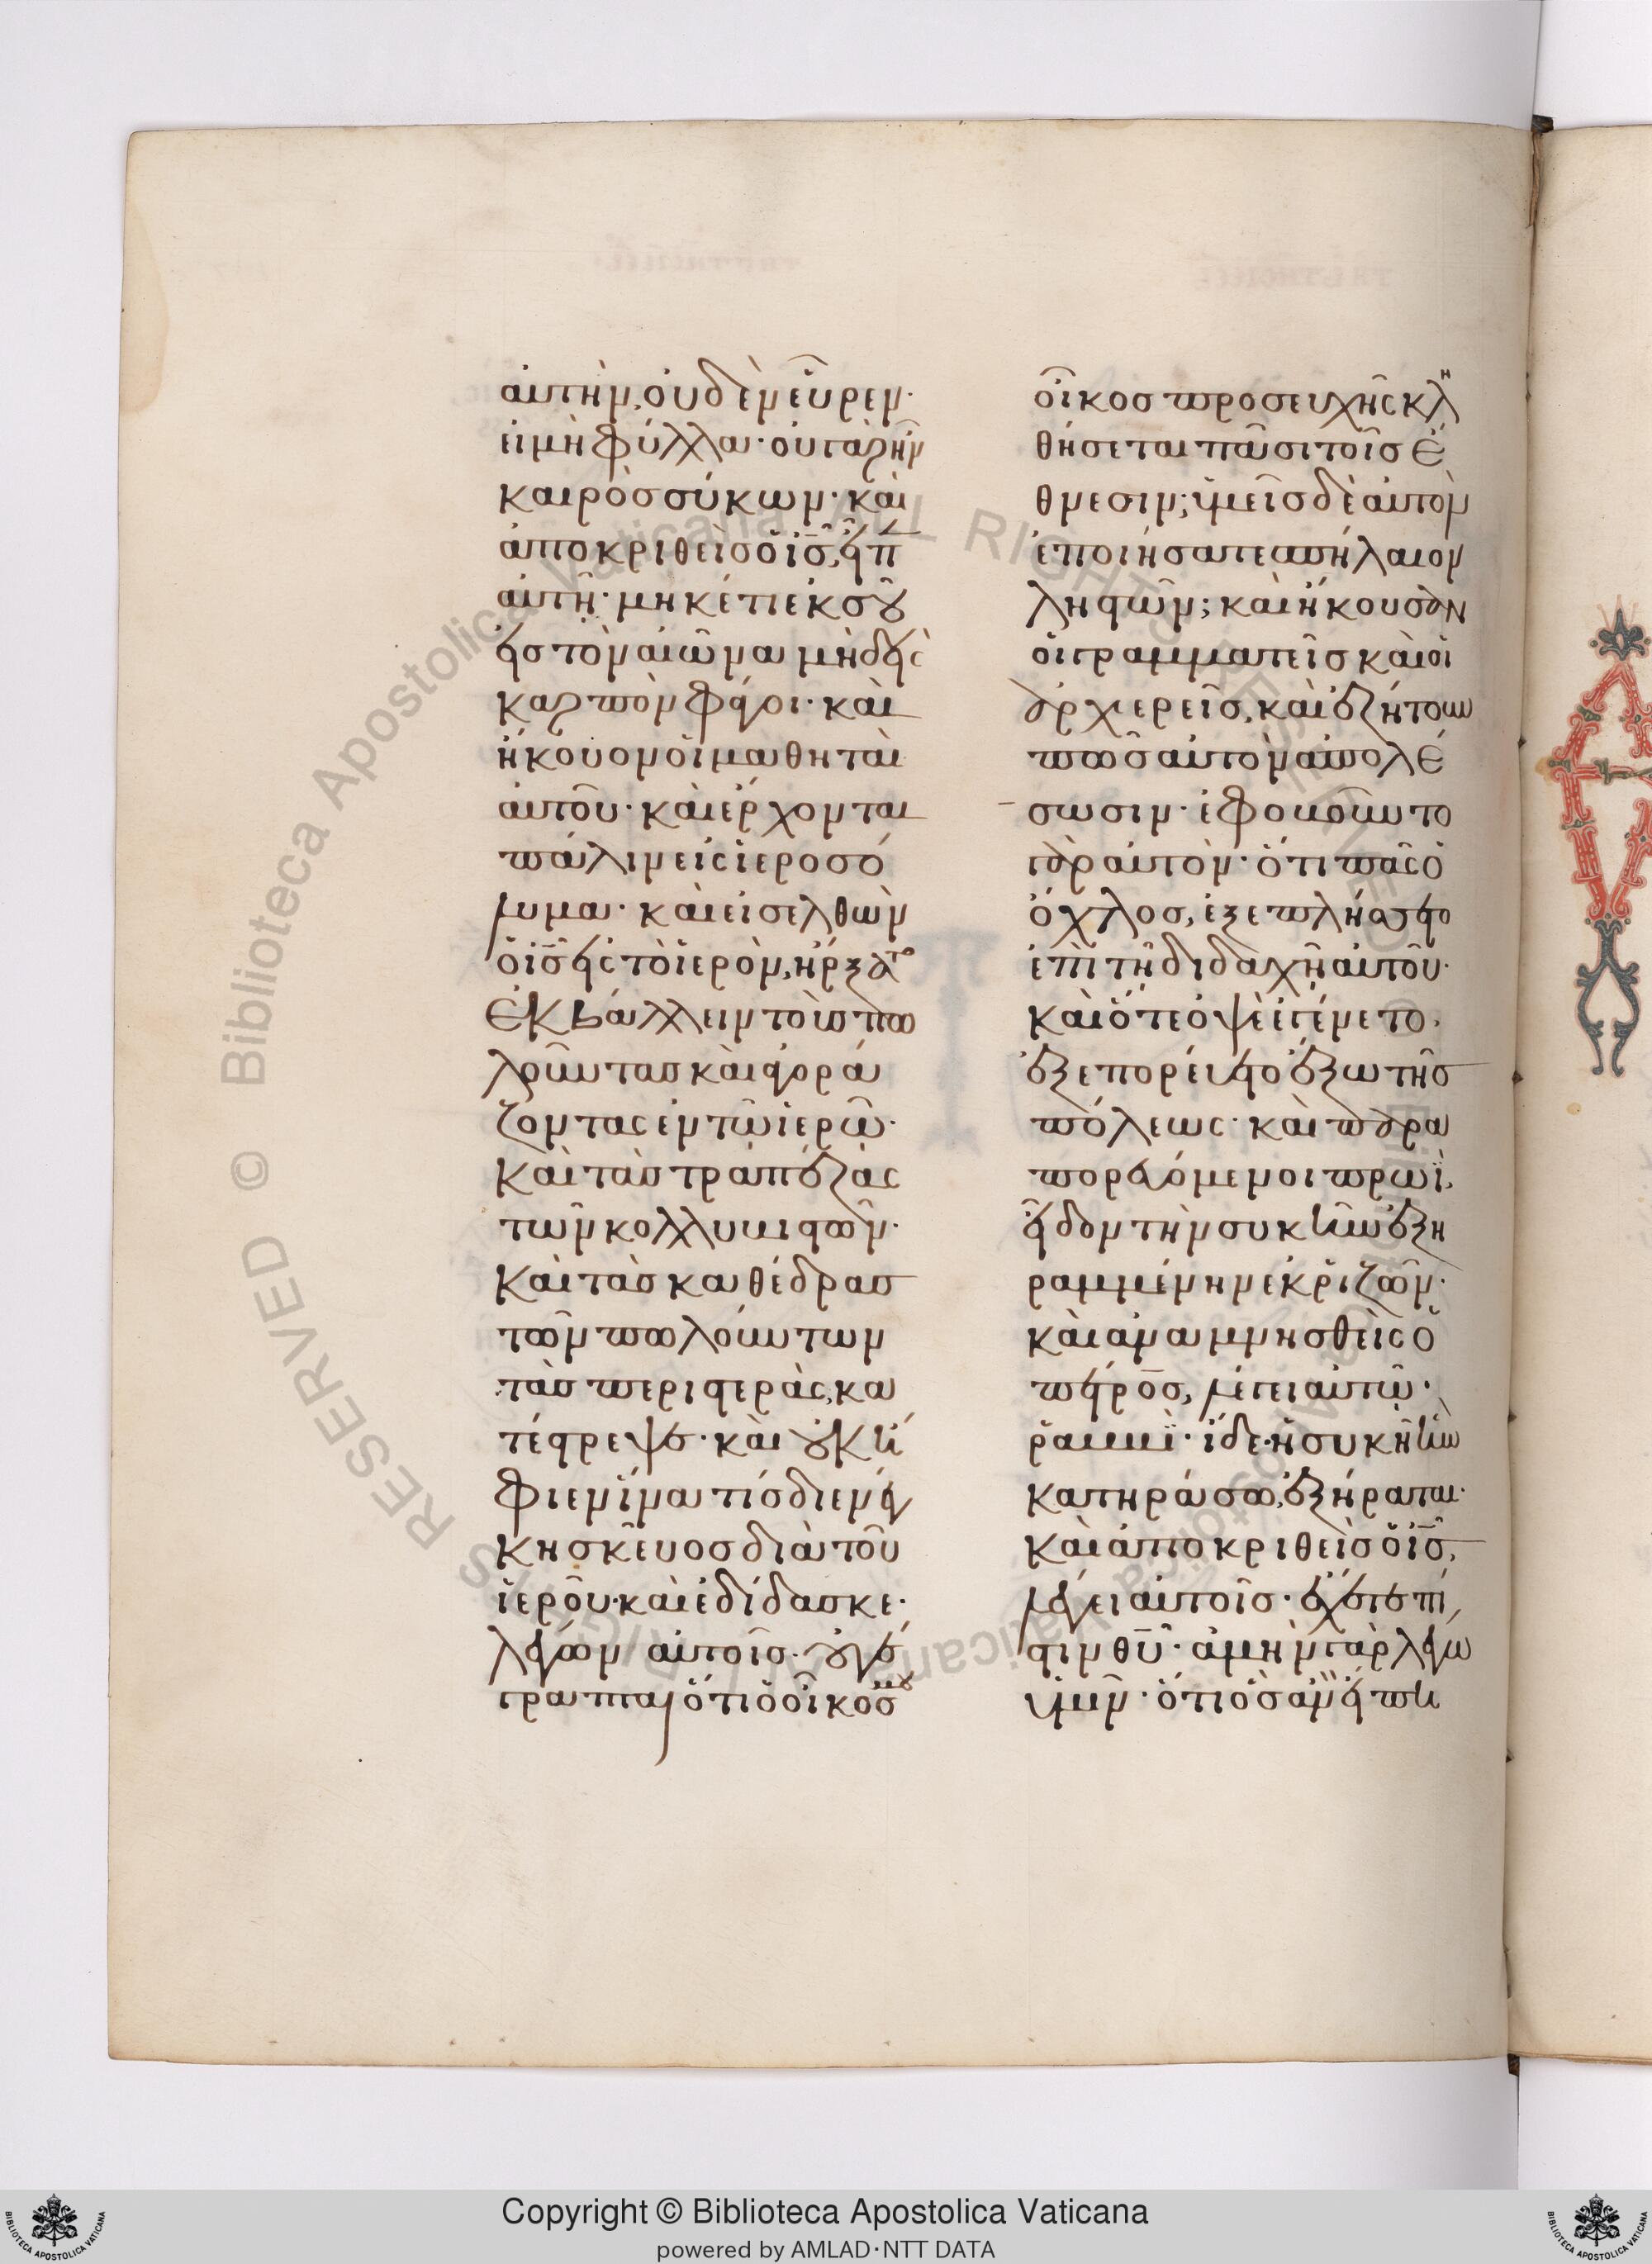 αὐτὴν, οὐδὲν εὗρεν·
εἰ μὴ φύλλα· οὐ γὰρ ἦν
καιρὸς σύκων· καὶ
ἀποκριθεὶς ὁ ἰς̅, εἶπ
αὐτῆ· μηκέτι ἐκ σοῦ
εἰς τὸν αἰῶνα μηδεὶς
καρπὸν φάγοι· καὶ
ἤκουον οἱ μαθηταὶ
αὐτοῦ· καὶ ἔρχονται
πάλιν εἰς ἱεροσό
λυμα· καὶ εἰσελθὼν
ὁ ἰς̅ εἰς τὸ ἱερὸν, ἤρξατο
ἐκβάλλειν τοὺς πω
λοῦντας καὶ ἀγορά
ζοντας ἐν τῶ ἱερῶ·
καὶ τὰς τραπέζας
τῶν κολλυβιστῶν·
καὶ τὰς καθέδρας
τῶν πωλούντων
τὰς περιστερὰς, κα
τέστρεψε· καὶ οὐκ ἤ
φιεν ἵνα τίς διενέγ
κη σκεῦος διὰ τοῦ
ἱεροῦ· καὶ ἐδίδασκε·
λέγων αὐτοῖς· οὐ γέ
γραπται ὅτι ὁ οἶκός μου
οἶκος προσευχῆς κλη
θήσεται πᾶσι τοῖς ἔ
θνεσιν; ὑμεῖς δὲ αὐτὸν
ἐποιήσατε σπήλαιον
ληστῶν; καὶ ἤκουσαν
οἱ γραμματεῖς καὶ οἱ
ἀρχιερεῖς, καὶ ἐζήτουν
πῶς αὐτὸν ἀπολέ
σωσιν· ἐφοβοῦντο
γὰρ αὐτὸν· ὅτι πᾶς ὁ
ὄχλος, ἐξεπλήσσετο
ἐπὶ τῆ διδαχῆ αὐτοῦ·
καὶ ὅτε ὀψὲ ἐγένετο,
ἐξεπορεύετο ἔξω τῆς
πόλεως· καὶ παρα
πορευόμενοι πρωῒ,
εἶδον τὴν συκῆν ἐξη
ραμμένην ἐκ ῥιζῶν·
καὶ ἀναμνησθεὶς ὁ
πέτρος, λέγει αὐτῶ·
ῥαββῒ· ἴδε· ἡ συκῆ ἣν
κατηράσω, ἐξήραται·
καὶ ἀποκριθεὶς ὁ ἰς̅,
λέγει αὐτοῖς· ἔχετε πί
στιν θυ̅· ἀμὴν γὰρ λέγω
ὑμῖν· ὅτι ὃς ἂν εἴπη